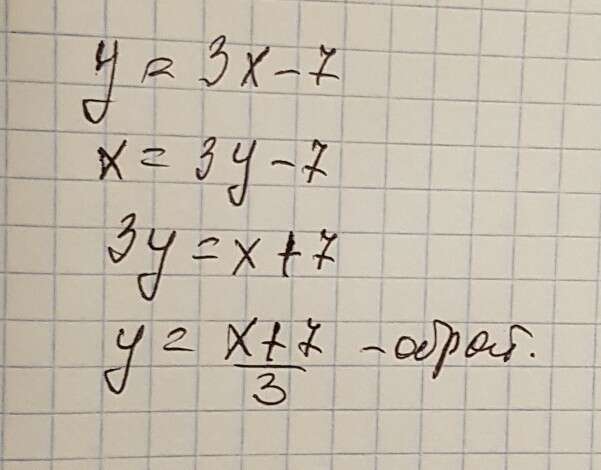 y = 3x - 7
x = 3y - 7
3y = x + 7
y = (x+7)/3 - обрат.